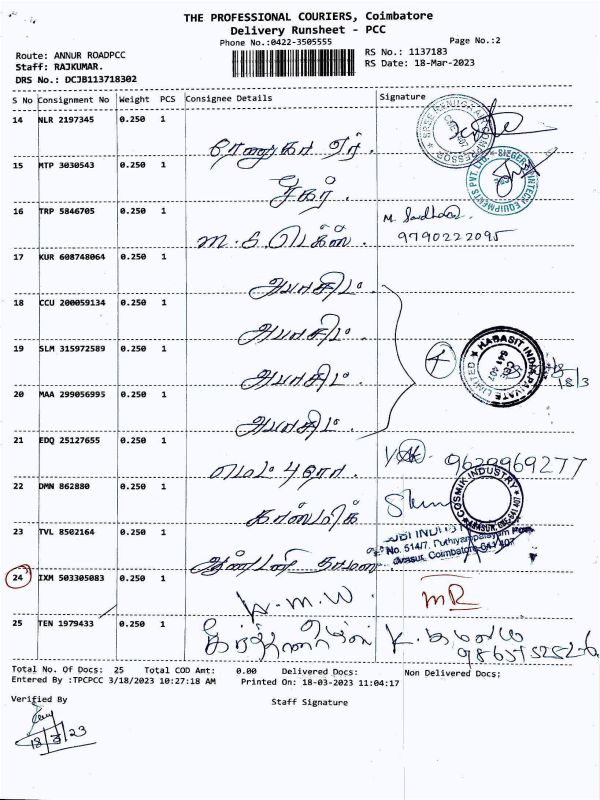 THE PROFESSIONAL COURIERS, Coimbatore
Delivery Runsheet - PCC
Phone No.:0422-3505555
Page No.:2
Route: ANNUR ROADPCC
RS No.: 1137183
Staff: RAJKUMAR.
RS Date: 18-Mar-2023
DRS No.: DCJB113718302
S No Consignment No Weight PCS Consignee Details Signature
14 NLR 2197345 0.250 1
15 MTP 3030543 0.250 1
சேகர்.
16 TRP 5846705 0.250 1
9790222095
17 KUR 608748064 0.250 1
அபாசிட்.
18 CCU 200059134 0.250 1
அபாசிட்
19 SLM 315972589 0.250 1
HABASIT INDIA PRIVATE LIMITED
CBE 641 407
4
18/3
அபாசிட்
20 MAA 299056995 0.250 1
அபாசிட்
21 EDQ 25127655 0.250 1
9629969277
22 DMN 862880 0.250 1
COSMIK INDUSTRY
காஸ்மிக்
23 TVL 8502164 0.250 1
No. 514/7, Puthiyampalayam Post,
Arasur, Coimbatore-641 407
24 IXM 503305083 0.250 1
W.M.W. MR
25 TEN 1979433 0.250 1
Total No. Of Docs: 25 Total COD Amt: 0.00 Delivered Docs: Non Delivered Docs:
Entered By :TPCPCC 3/18/2023 10:27:18 AM Printed On: 18-03-2023 11:04:17
Verified By
Staff Signature
18/3/23